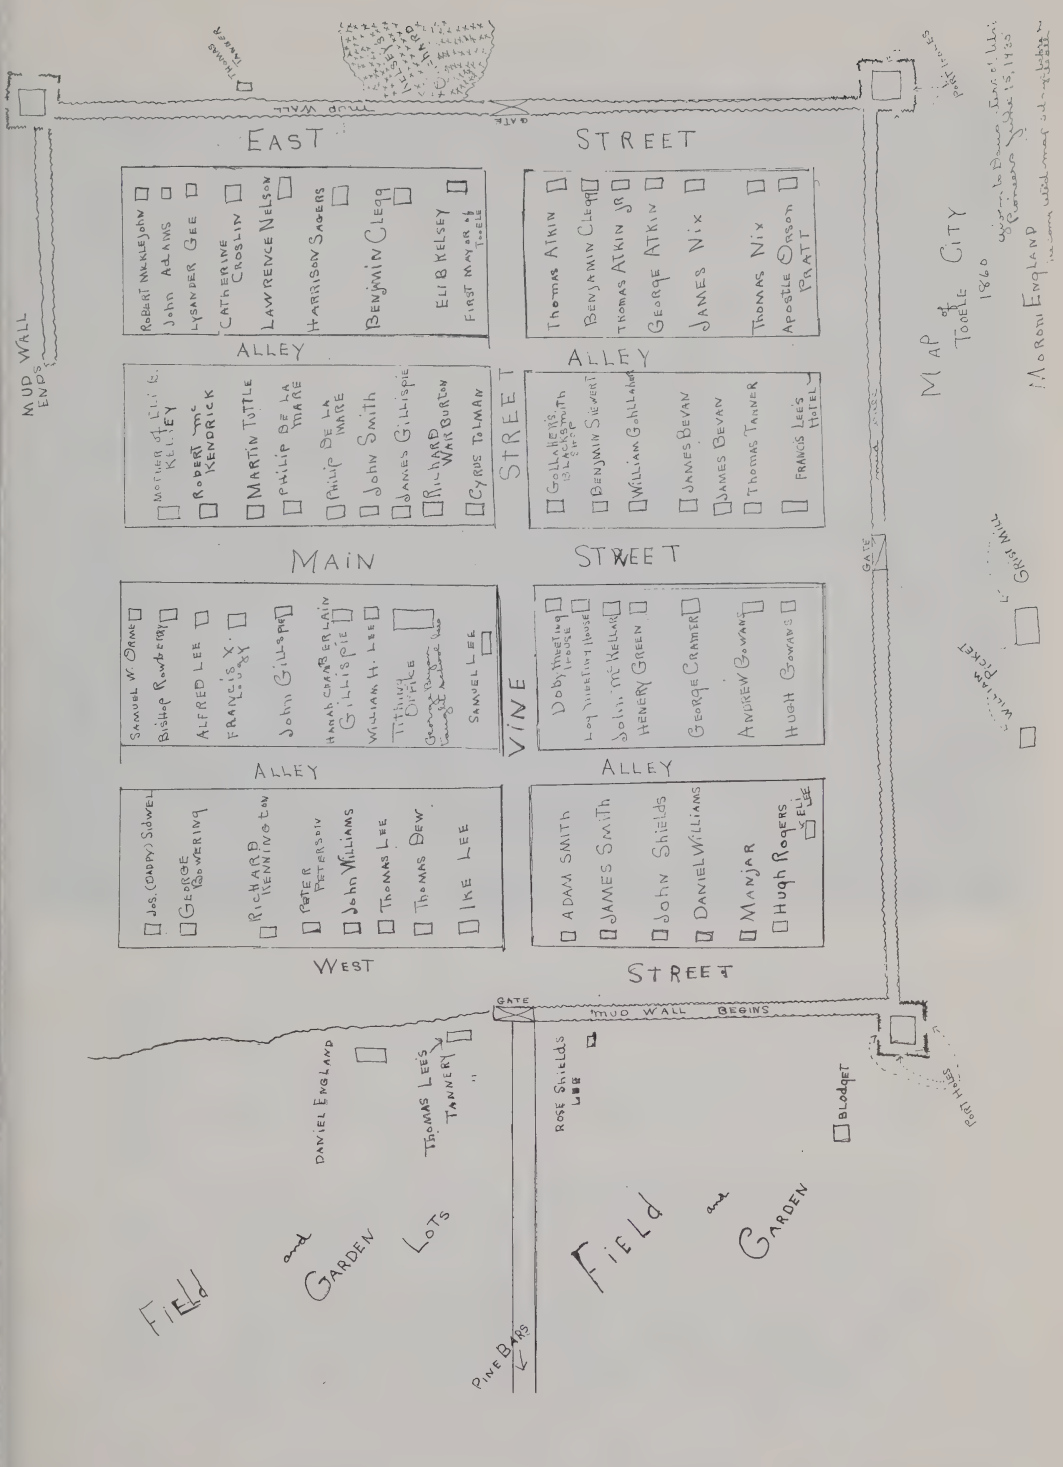 MAP
of
TOOELE CITY
1860
MORONI ENGLAND
THOMAS
TANNER
KELSEY'S
ORCHARD
MUD WALL
GATE
PORT HOLES
MUD WALL
ENDS
EAST STREET
ROBERT MCKLEJOHN
John ADAMS
LYSANDER GEE
CATHERINE
CROSLIN
LAWRENCE NELSON
HARRISON SAGERS
BENJAMIN CLEGG
ELI B KELSEY
FIRST MAYOR of
TOOELE
THOMAS ATKIN
BENJAMIN CLEGG
THOMAS ATKIN JR
GEORGE ATKIN
JAMES NIX
THOMAS NIX
APOSTLE ORSON
PRATT
ALLEY
ALLEY
MOTHER of ELI B.
KELSEY
ROBERT Mc
KENDRICK
MARTIN TUTTLE
PHILIP DE LA
MARE
PHILIP DE LA
MARE
John Smith
JAMES GILLISPIE
RICHARD
WARBURTON
CYRUS TOLMAN
STREET
GOLLAHER'S
BLACKSMITH
SHOP
BENJMIN SIEWERT
WILLIAM GOHLLAHER
JAMES BEVAN
JAMES BEVAN
THOMAS TANNER
FRANCIS LEE'S
HOTEL
MAIN STREET
GATE
GRIST MILL
WILLIAM
PICKET
SAMUEL W. ORME
BISHOP Rowberry
ALFRED LEE
FRANCIS X.
LOUGY
John GILLSPIE
HANAH CHAMBERLAIN
GILLISPIE
WILLIAM H. LEE
TITHING
OFFIKE
SAMUEL LEE
VINE
DOBY MEETING
HOUSE
LOG MEETING HOUSE
John McKELLAR
HENERY GREEN
GEORGE CRAMER
ANDREW GOWANS
HUGH GOWANS
ALLEY
ALLEY
JOS. (DADDY) SIDWEL
GEORGE
BOWERING
RICHARD
KENNINGTON
PETER
PETERSON
John WILLIAMS
THOMAS LEE
THOMAS DEW.
IKE LEE
ADAM SMITH
JAMES SMITH
JOHN SHIELDS
DANIEL WILLIAMS
MANJAR
Hugh ROGERS
ELI
LEE
WEST STREET
GATE
MUD WALL BEGINS
PORT HOLES
DANIEL ENGLAND
THOMAS LEE'S
TANNERY
ROSE SHIELDS
LEE
BLODGET
FIELD
and
GARDEN
LOTS
FIELD
and
GARDEN
PINE BARS